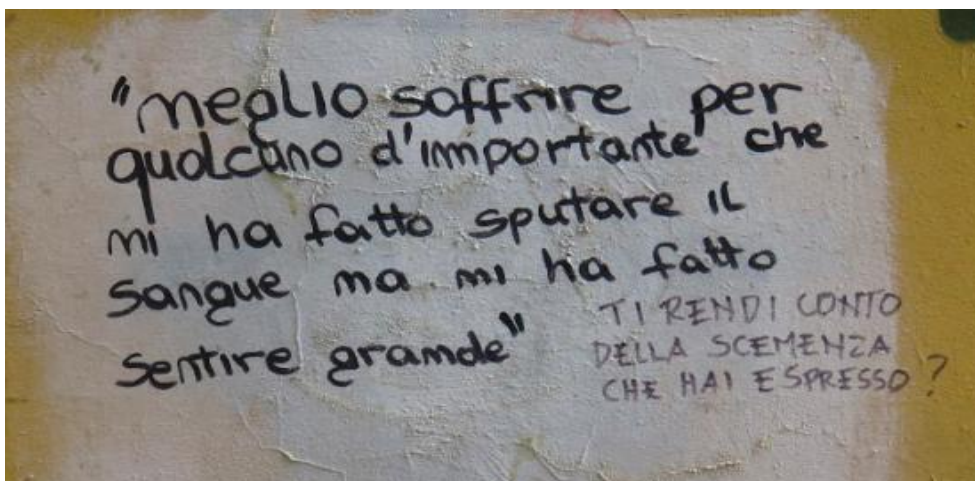 "meglio soffrire per
qualcuno d'importante che
mi ha fatto sputare il
sangue ma mi ha fatto
sentire grande"
TI RENDI CONTO
DELLA SCEMENZA
CHE HAI ESPRESSO?